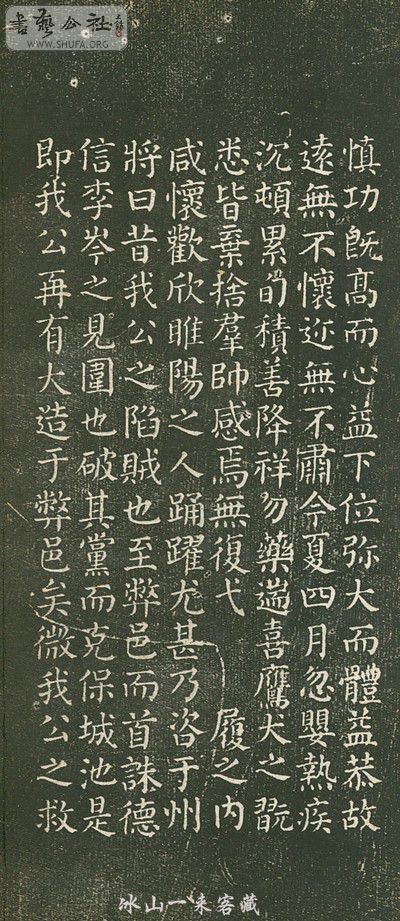 書藝公社
WWW.SHUFA.ORG
慎功旣高而心益下位弥大而體益恭故
遠無不懷迩無不肅今夏四月忽嬰熱疾
沉頓累旬積善降祥勿藥遄喜鷹犬之翫
悉皆棄捨羣帥感焉無復弋 履之内
咸懷歡欣睢陽之人踊躍尤甚乃咨于州
將曰昔我公之陷賊也至弊邑而首誅德
信李岑之見圍也破其黨而克保城池是
即我公再有大造于弊邑矣微我公之救
冰山一来客藏